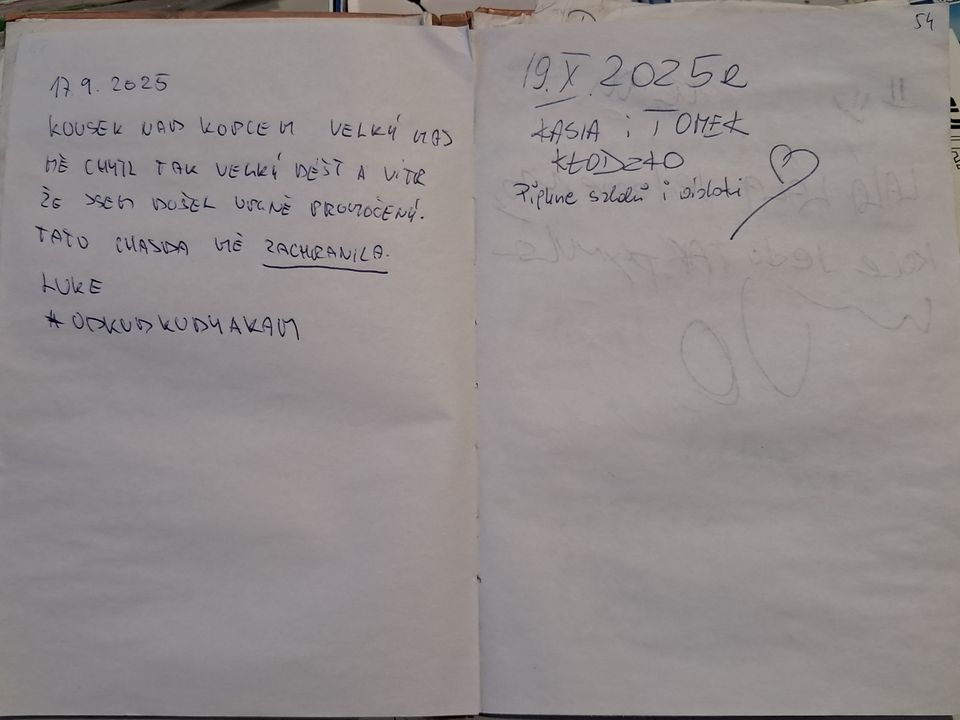 17.9.2025
KOUSEK NAD KOPCEM VELKÝ MAD
MĚ CHYTL TAK VELKÝ DÉŠŤ A VÍTR
ŽE JSEM DOŠEL ÚPLNĚ PROMOČENÝ.
TATO CHAJDA MĚ ZACHRANILA.
LUKE
#ODKUDKUDYAKAM
54
19.X.2025r
KASIA i TOMEK
KŁODZKO
Piękne szlaki i widoki